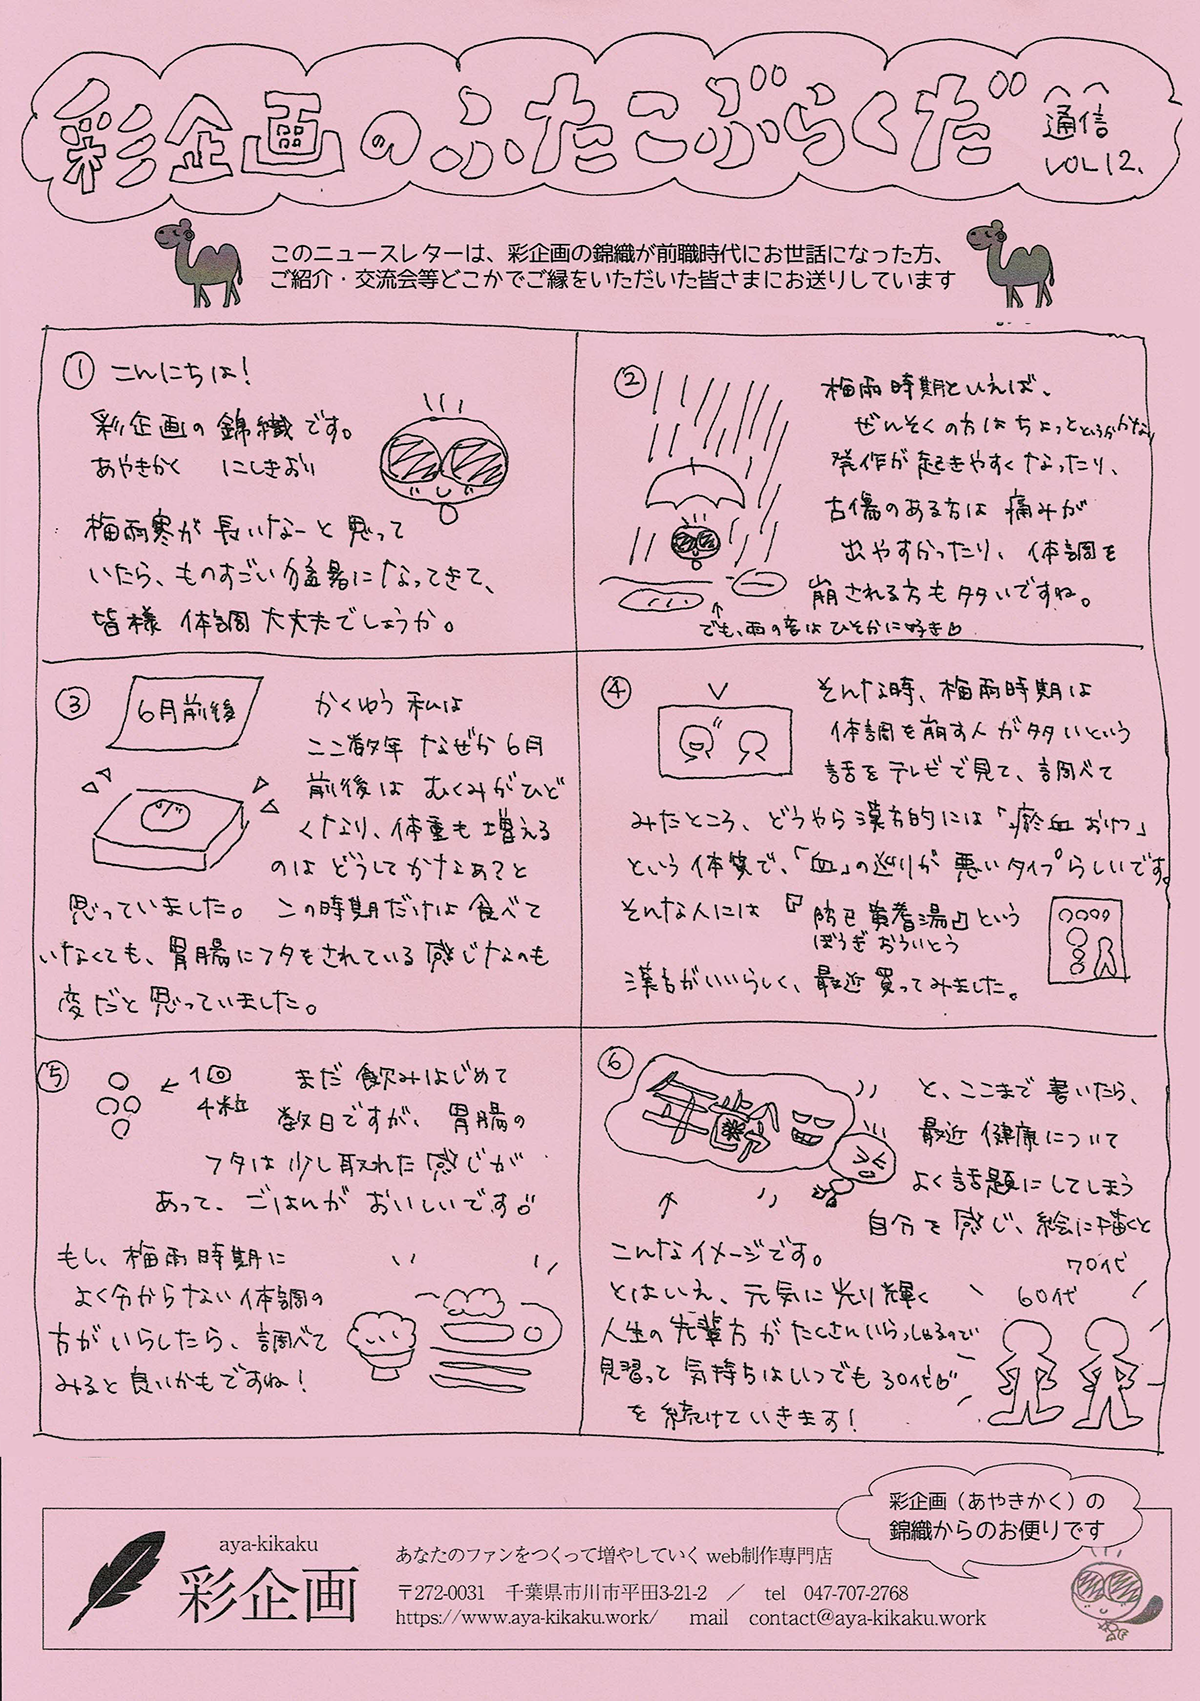 彩企画のふたこぶらくだ
通信
VOL12.
このニュースレターは、彩企画の錦織が前職時代にお世話になった方、
ご紹介・交流会等どこかでご縁をいただいた皆さまにお送りしています
① こんにちは!
彩企画の錦織です。
あやきかく にしきおり
梅雨寒が長いなーと思って
いたら、ものすごい猛暑になってきて、
皆様 体調大丈夫でしょうか。
②
梅雨時期といえば、
ぜんそくの方はちょっと
発作が起きやすくなったり、
古傷のある方は痛みが
出やすかったり、体調を
崩される方も多いですね。
でも、雨の音はひそかに好き
③
6月前後
かくゆう私は
ここ数年なぜか6月
前後はむくみがひど
くなり、体重も増える
のはどうしてかなぁ?と
思っていました。この時期だけは食べて
いなくても、胃腸にフタをされている感じなのも
変だと思っていました。
④
そんな時、梅雨時期は
体調を崩す人が多いという
話をテレビで見て、調べて
みたところ、どうやら漢方的には「瘀血 おけつ」
という体質で、「血」の巡りが悪いタイプらしいです。
そんな人には『防已黄耆湯』という
ぼうぎおういとう
漢方がいいらしく、最近買ってみました。
⑤
1回
4粒
まだ飲みはじめて
数日ですが、胃腸の
フタは少し取れた感じが
あって、ごはんがおいしいです
もし、梅雨時期に
よく分からない体調の
方がいらしたら、調べて
みると良いかもですね!
⑥
年齢
と、ここまで書いたら、
最近健康について
よく話題にしてしまう
自分を感じ、絵に描くと
こんなイメージです。
70代
60代
とはいえ、元気に光り輝く
人生の先輩方がたくさんいらっしゃるので
見習って気持ちはいつでも30代
を続けていきます!
彩企画(あやきかく)の
錦織からのお便りです
aya-kikaku
彩企画
あなたのファンをつくって増やしていくweb制作専門店
〒272-0031 千葉県市川市平田3-21-2 / tel 047-707-2768
https://www.aya-kikaku.work/ mail contact@aya-kikaku.work